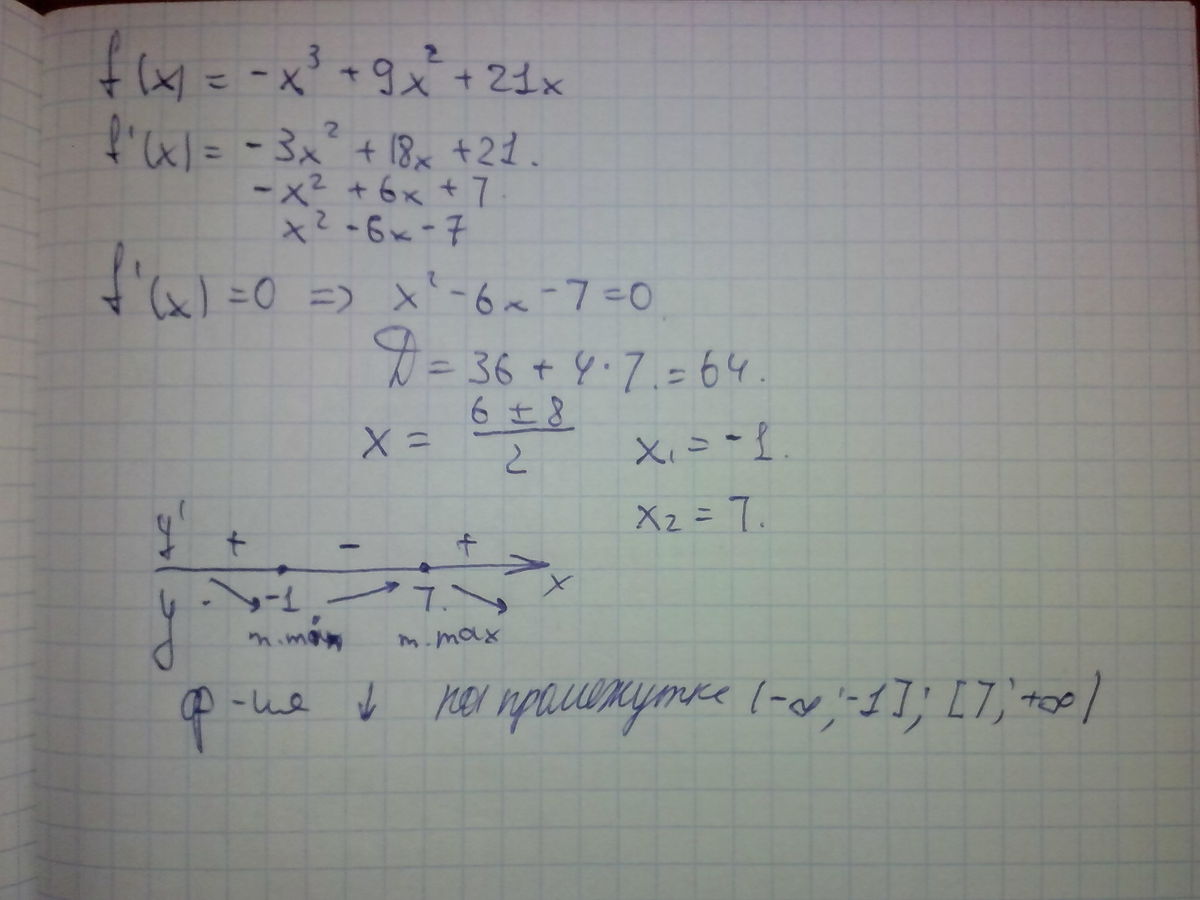 f(x) = -x³ + 9x² + 21x
f'(x) = -3x² + 18x + 21.
-x² + 6x + 7.
x² - 6x - 7
f'(x) = 0 => x² - 6x - 7 = 0
D = 36 + 4·7. = 64.
x = (6 ± 8)/2 x₁ = -1.
x₂ = 7.
y' + - +
y -1 7. x
т. min т. max
ф-ция ↓ на промежутке (-∞; -1]; [7; +∞)